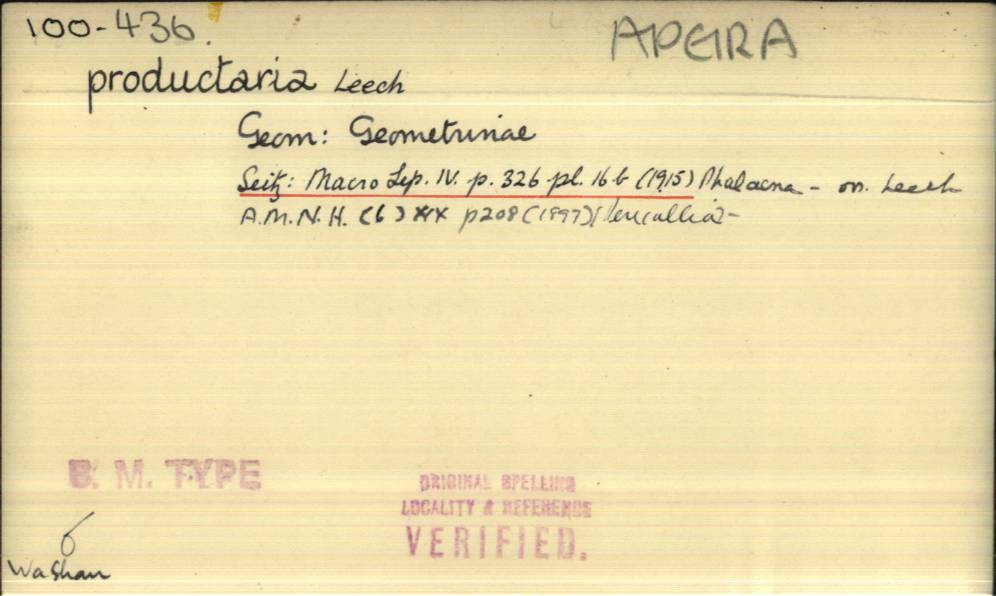 100-436
APEIRA
productaria Leech
Geom: Geometrinae
Seitz: Macro Lep. IV. p. 326 pl. 16 b (1915) Phalaena - on. Leech
A.M.N.H. (6) XIX p208 (1897)
B. M. TYPE
ORIGINAL SPELLING
LOCALITY & REFERENCE
VERIFIED.
♂
Washan